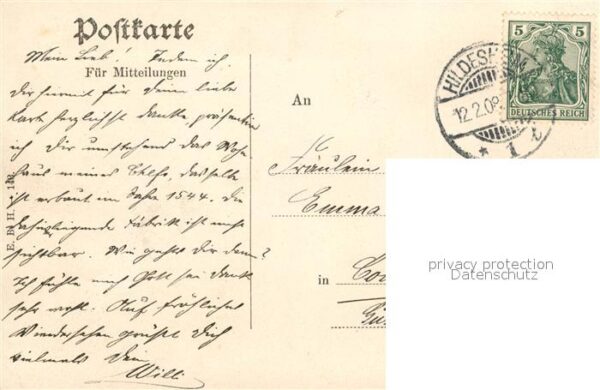 Postkarte
Für Mitteilungen
Mein Lieb! Indem ich
Dir hiermit für Deine liebe
Karte herzlichst danke, präsentiere
ich Dir umstehend das Wohn
haus meines Chefs, dasselbe
ist erbaut im Jahre 1544. Die
dahinterliegende Fabrik ist nicht
sichtbar. Wie geht's Dir denn?
Ich fühle mich Gott sei dank
sehr wohl. Auf fröhliches
Wiedersehen grüßt Dich
vielmals Dein
Willi
E. B. H.
An
Fräulein
Emma
in
HILDESHEIM
12.2.09
5 5
DEUTSCHES REICH
privacy protection
Datenschutz